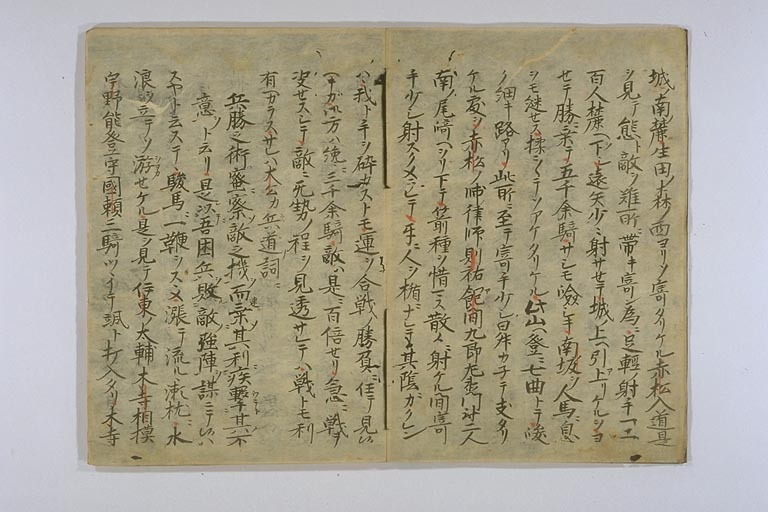 城ノ南麓生田ノ森ノ西ヨリソ寄タリケル赤松入道是
ヲ見テ態ト敵ヲ難所ニ帯キ寄ン為ニ足軽射手一二
百人麓ヘ下シ遠矢少々射サセテ城ヘ上引上リケルヲヨ
セテ勝ニ乗テ五千余騎サシモ險シキ南坂ヲ人馬ニ息
ヲモ継セス揉ミニテソアケタリケル此山ヘ登ニ七曲トテ峻
ク細キ路アリ此所ニ至テ寄手少シ上カ子テ支タリ
ケル處ヲ赤松ノ帥律師則祐飽間九郎左衛門尉二人
南ノ尾崎ヘ下リ下テ箭種ヲ惜マス散々ニ射ケル間寄
手少シ射スクメラレテ互ニ人ヲ楯ナシテ其陰ガクレン
ハ我ト手ヲ砕カストモ運ヲ合戦ノ勝負ニ任テ見ハ
方ハ纔ニ三千余騎敵ハ是ニ百倍セリ急ニ戦テ
敵ニ無勢ノ程ヲ見透サレテハ戦トモ利
有ヘカラスサレハ太公カ兵道ノ詞ニ
兵勝之術蜜察敵之機而速乗其利疾撃其不
意ト云リ是以吾困兵敗敵強陣謀ニテ
スヤト云ステ駿馬ニ一鞭ヲスヽメ漲テ流ル瀬枕ニ水
浪ヲ立テヽソ游セケル是ヲ見テ伊東大輔木寺相摸
宇野能登守國頼三騎ツヽイテ颯ト打入タリ木寺